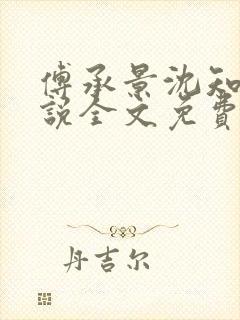 傅承景沈知
说全文免费
丹吉尔